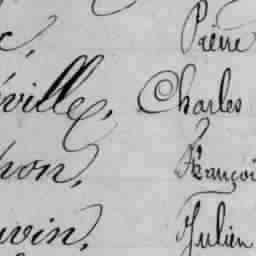 c, Pierre
éville, Charles
hon, François
uvin, Julien